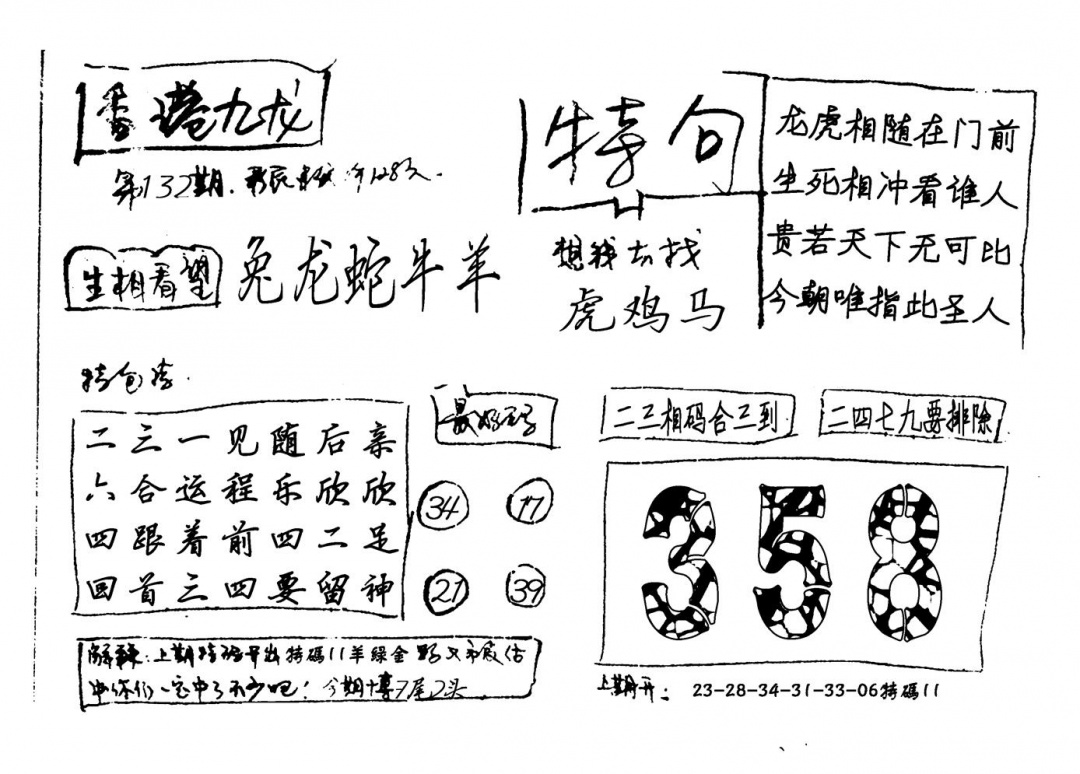 香港九龙
第132期.
特句
龙虎相随在门前
生死相冲看谁人
贵若天下无可比
今朝唯指此圣人
想我去找
虎鸡马
生相看望
兔龙蛇牛羊
二三一见随后亲
六合运程乐欣欣
四跟着前四二足
回首三四要留神
34 17
21 39
二三相码合三到
二四七九要排除
358
解释:上期特码开出特碼11羊綠金
中你们一定中了不少吧!今期博7尾2头
上期开: 23-28-34-31-33-06特碼11